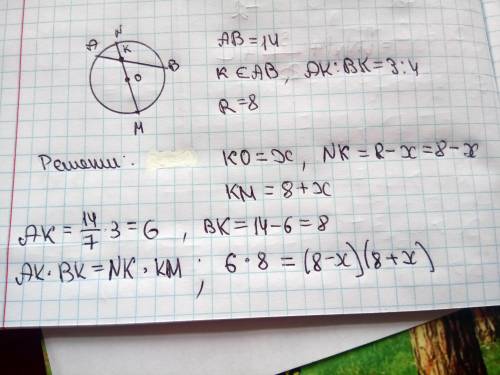 N
A
K
B
O
M
AB = 14
K ∈ AB, AK : BK = 3 : 4
R = 8
Решени:.
KO = x, NK = R - x = 8 - x
KM = 8 + x
AK = 14/7 · 3 = 6, BK = 14 - 6 = 8
AK · BK = NK · KM; 6 · 8 = (8 - x)(8 + x)